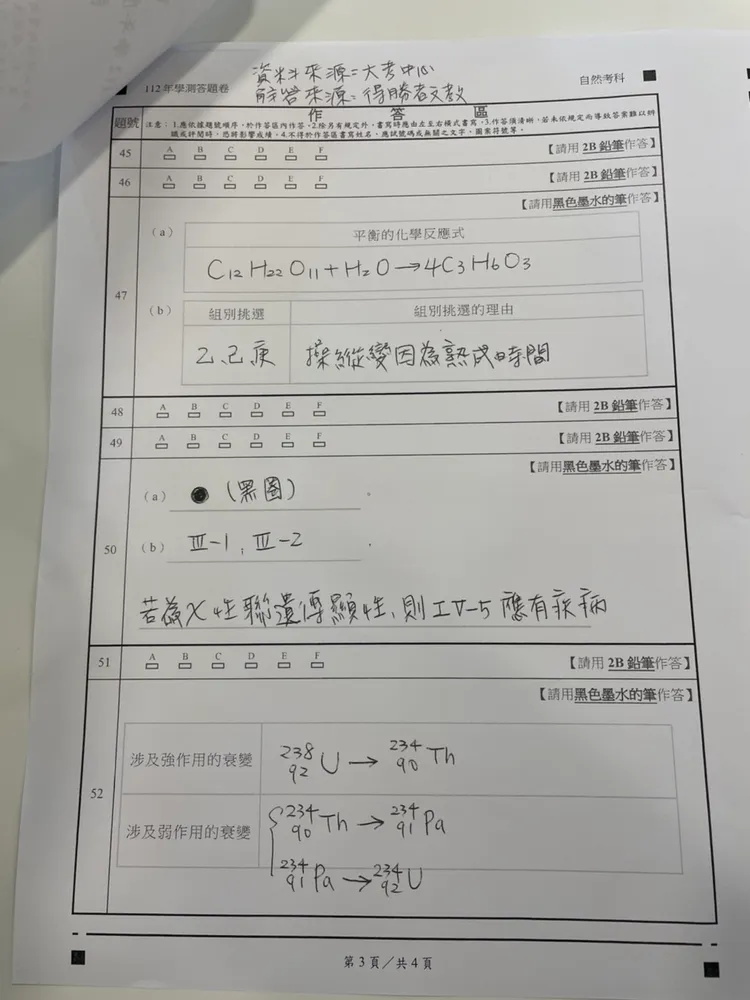 資料來源=大考中心
解答來源=得勝者文教
112年學測答題卷
自然考科
題號
作答區
注意：1.應依據題號順序，於作答區內作答。2.除另有規定外，書寫時應由左至右橫式書寫。3.作答須清晰，若未依規定而導致答案難以辨
識或評閱時，恐將影響成績。4.不得於作答區書寫姓名、應試號碼或無關之文字、圖案符號等。
45 A B C D E F 【請用 2B 鉛筆作答】
46 A B C D E F 【請用 2B 鉛筆作答】
【請用黑色墨水的筆作答】
47
(a)
平衡的化學反應式
C₁₂H₂₂O₁₁+H₂O→4C₃H₆O₃
(b)
組別挑選 組別挑選的理由
乙己庚 操縱變因為熟成時間
48 A B C D E F 【請用 2B 鉛筆作答】
49 A B C D E F 【請用 2B 鉛筆作答】
【請用黑色墨水的筆作答】
50
(a) ●(黑圈)。
(b) Ⅲ-1, Ⅲ-2.
若為X性聯遺傳顯性,則IV-5應有疾病
51 A B C D E F 【請用 2B 鉛筆作答】
【請用黑色墨水的筆作答】
52
涉及強作用的衰變 ²³⁸₉₂U→²³⁴₉₀Th
涉及弱作用的衰變 ²³⁴₉₀Th→²³⁴₉₁Pa
²³⁴₉₁Pa→²³⁴₉₂U
第3頁/共4頁